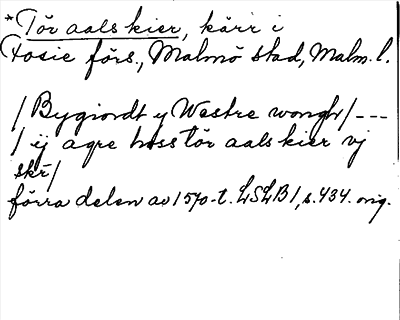 *Tör aals kier, kärr i
Fosie förs., Malmö stad, Malm. l.
/Bygiordt y Westre wongh/---
/ ij agre hoss tör aals kier vj
skr/
förra delen av 1570-t. LSLB1, s. 434. orig.